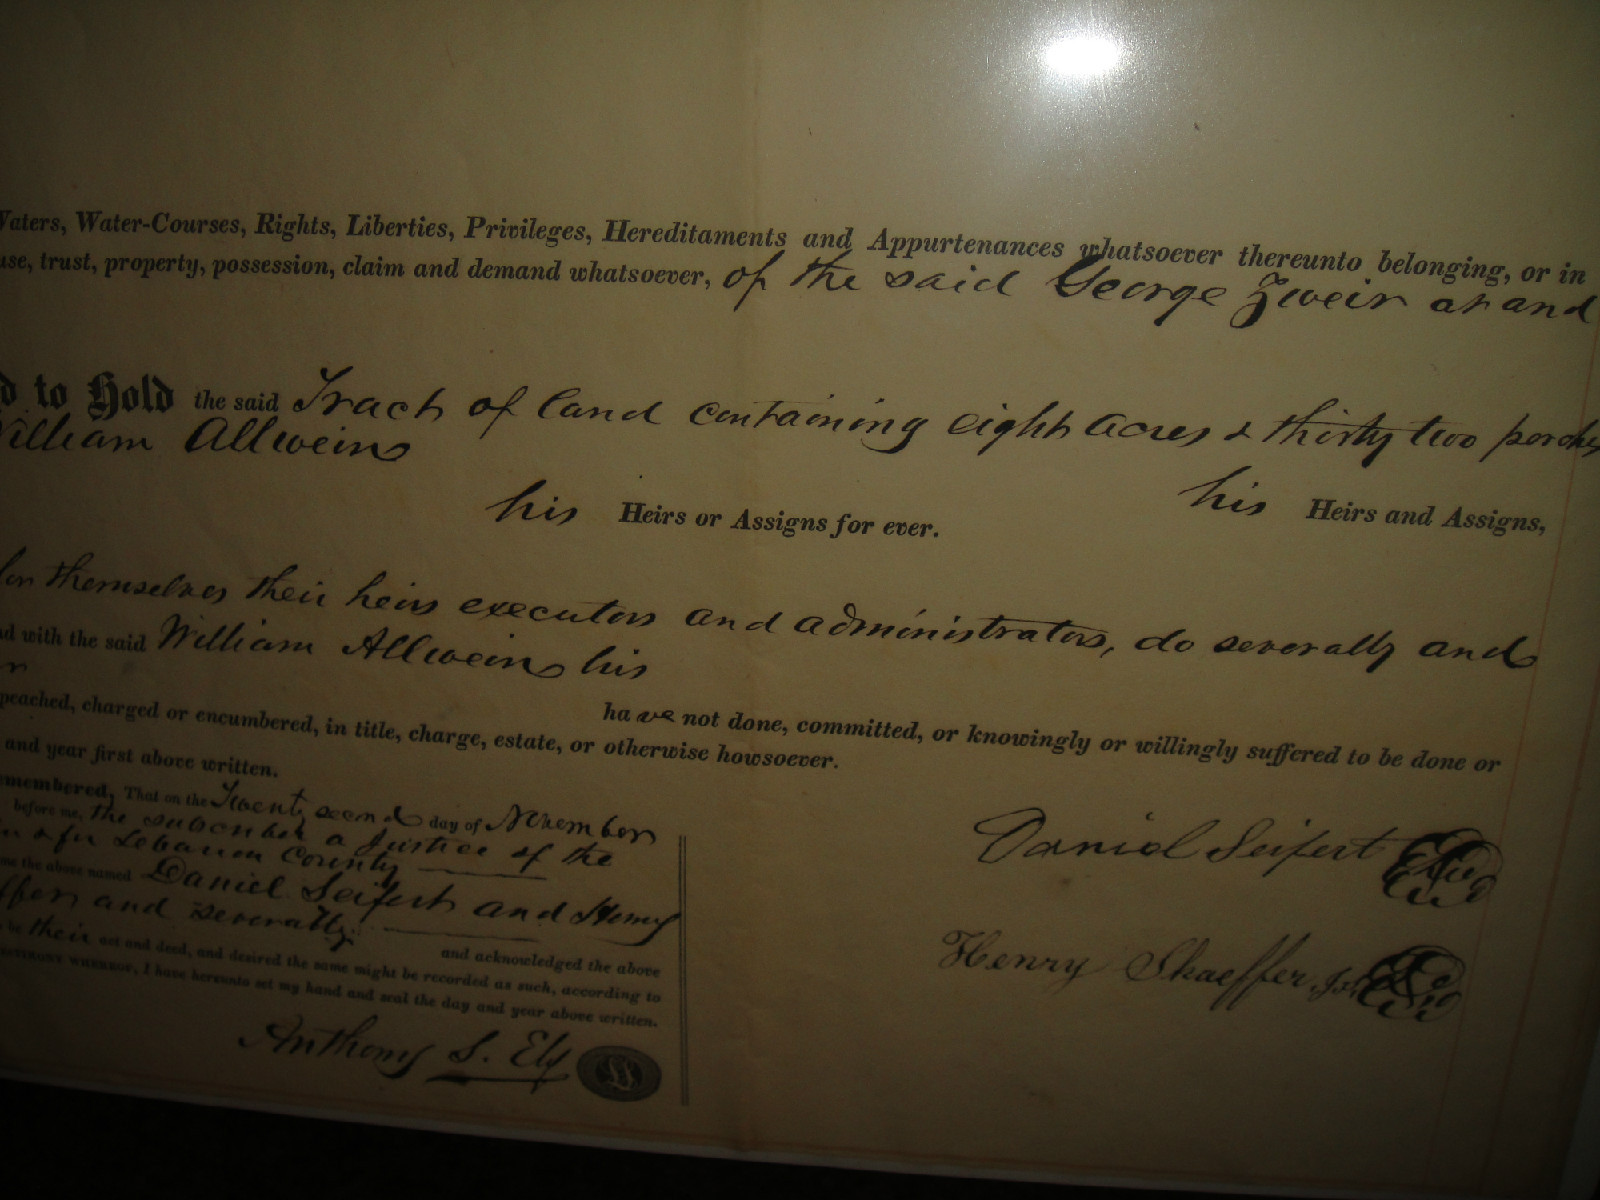 Waters, Water-Courses, Rights, Liberties, Privileges, Hereditaments and Appurtenances whatsoever thereunto belonging, or in
use, trust, property, possession, claim and demand whatsoever, of the said George Zweir at and
to Hold the said Tract of land containing eight acres & thirty two perches
William Allwein
his Heirs and Assigns,
his Heirs or Assigns for ever.
for themselves their heirs executors and administrators, do severally and
and with the said William Allwein his
have not done, committed, or knowingly or willingly suffered to be done or
peached, charged or encumbered, in title, charge, estate, or otherwise howsoever.
and year first above written.
emembered, That on the Twenty second day of November
before me, the subscriber a Justice of the
in & for Lebanon County
me the above named Daniel Seifert and Henry
ffer and severally
and acknowledged the above
to be their act and deed, and desired the same might be recorded as such, according to
WHEREOF, I have hereunto set my hand and seal the day and year above written.
Anthony S. Ely
LS
Daniel Seifert
Henry Shaeffer, Jr.